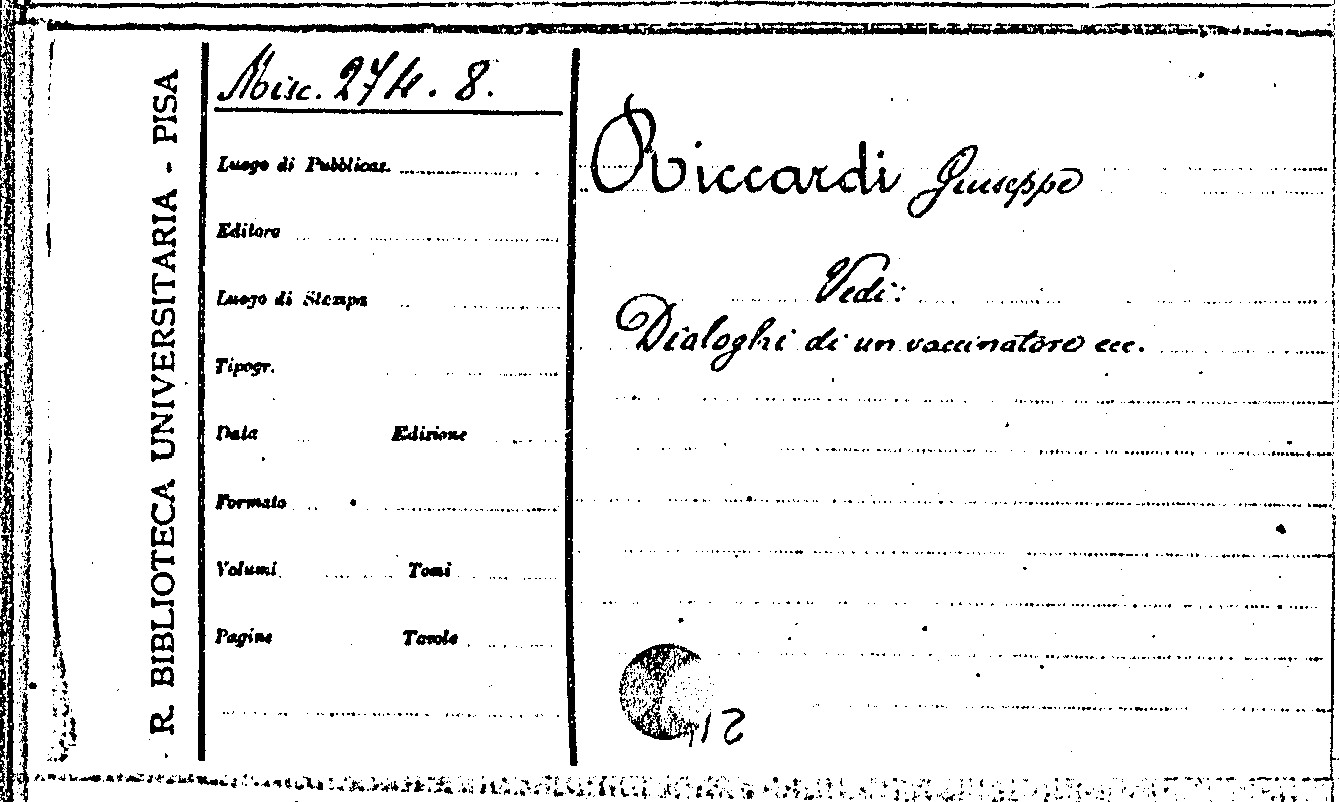 R. BIBLIOTECA UNIVERSITARIA - PISA
Misc. 274. 8.
Luogo di Pubblicaz.
Editore
Luogo di Stampa
Tipogr.
Data Edizione
Formato
Volumi Tomi
Pagine Tavole
Riccardi Giuseppe
Vedi:
Dialoghi di un vaccinatore ecc.